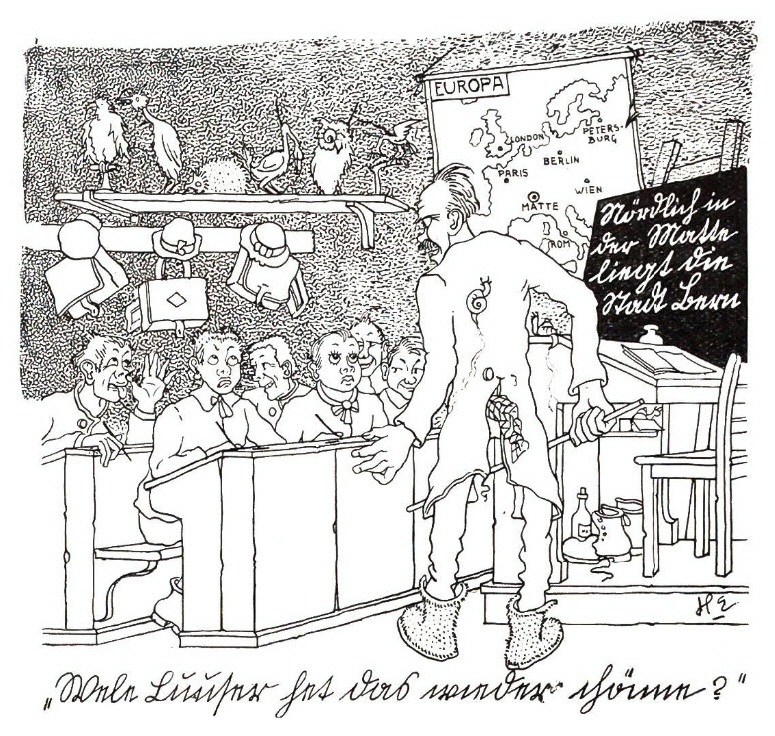 EUROPA
LONDON
PETERS-
BURG
PARIS
BERLIN
WIEN
MATTE
ROM
Nördlich in
der Matte
liegt die
Stadt Bern
HE
„Wele Luuser het das wieder chönne?"